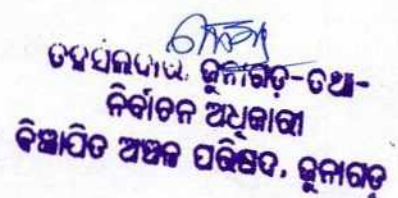 ତହସିଲଦାର, ଜୁନାଗଡ଼-ତଥା-
ନିର୍ବାଚନ ଅଧିକାରୀ
ବିଜ୍ଞାପିତ ଅଞ୍ଚଳ ପରିଷଦ, ଜୁନାଗଡ଼